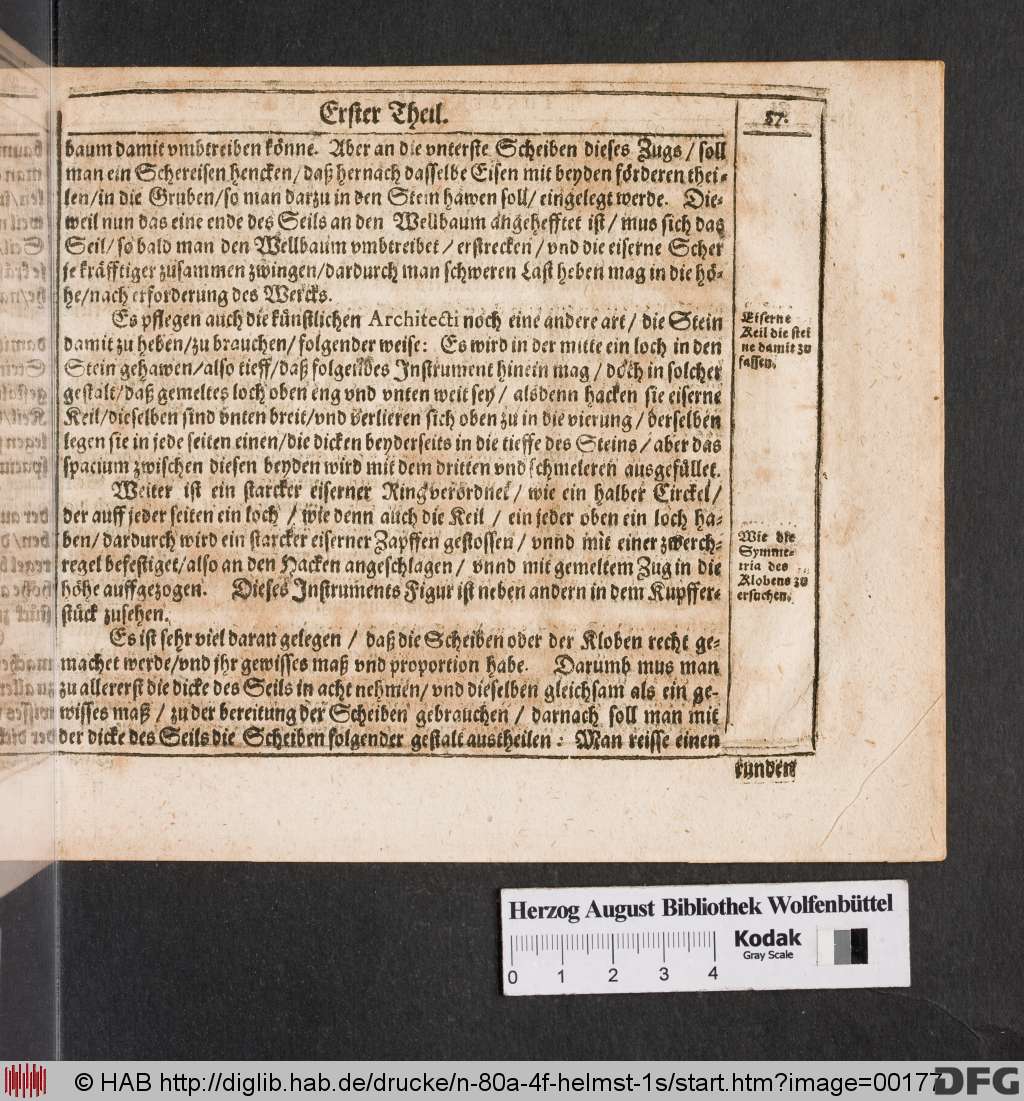 Erster Theil.
57.
baum damit vmbtreiben könne. Aber an die vnterste Scheiben dieses Zugs / soll
man ein Schereisen hencken / daß hernach dasselbe Eisen mit beyden förderen thei-
len / in die Gruben / so man darzu in den Stein hawen soll / eingelegt werde. Die-
weil nun das eine ende des Seils an den Wellbaum angehefftet ist / mus sich das
Seil / so bald man den Wellbaum vmbtreibet / erstrecken / vnd die eiserne Scher
je kräfftiger zusammen zwingen / dardurch man schweren Last heben mag in die hö-
he / nach erforderung des Wercks.
Es pflegen auch die künstlichen Architecti noch eine andere art / die Stein
damit zu heben / zu brauchen / folgender weise: Es wird in der mitte ein loch in den
Stein gehawen / also tieff / daß folgendes Instrument hinein mag / doch in solcher
gestalt / daß gemeltes loch oben eng vnd vnten weit sey / alsdenn hacken sie eiserne
Keil / dieselben sind vnten breit / vnd verlieren sich oben zu in die vierung / derselben
legen sie in jede seiten einen / die dicken beyderseits in die tieffe des Steins / aber das
spacium zwischen diesen beyden wird mit dem dritten vnd schmeleren ausgefüllet.
Weiter ist ein starcker eiserner Ring verordnet / wie ein halber Circkel /
der auff jeder seiten ein loch / wie denn auch die Keil / ein jeder oben ein loch ha-
ben / dardurch wird ein starcker eiserner Zapffen gestossen / vnnd mit einer zwerch-
regel befestiget / also an den Hacken angeschlagen / vnnd mit gemeltem Zug in die
höhe auffgezogen. Dieses Instruments Figur ist neben andern in dem Kupffer-
stück zusehen.
Es ist sehr viel daran gelegen / daß die Scheiben oder der Kloben recht ge-
machet werde / vnd jhr gewisses maß vnd proportion habe. Darumb mus man
zu allererst die dicke des Seils in acht nehmen / vnd dieselben gleichsam als ein ge-
wisses maß / zu der bereitung der Scheiben gebrauchen / darnach soll man mit
der dicke des Seils die Scheiben folgender gestalt austheilen: Man reisse einen
runden
Eiserne
Keil die stei
ne damit zu
fassen.
Wie die
Symme-
tria des
Klobens zu
ersuchen.
Herzog August Bibliothek Wolfenbüttel
0 1 2 3 4
Kodak
Gray Scale
© HAB http://diglib.hab.de/drucke/n-80a-4f-helmst-1s/start.htm?image=00177
DFG